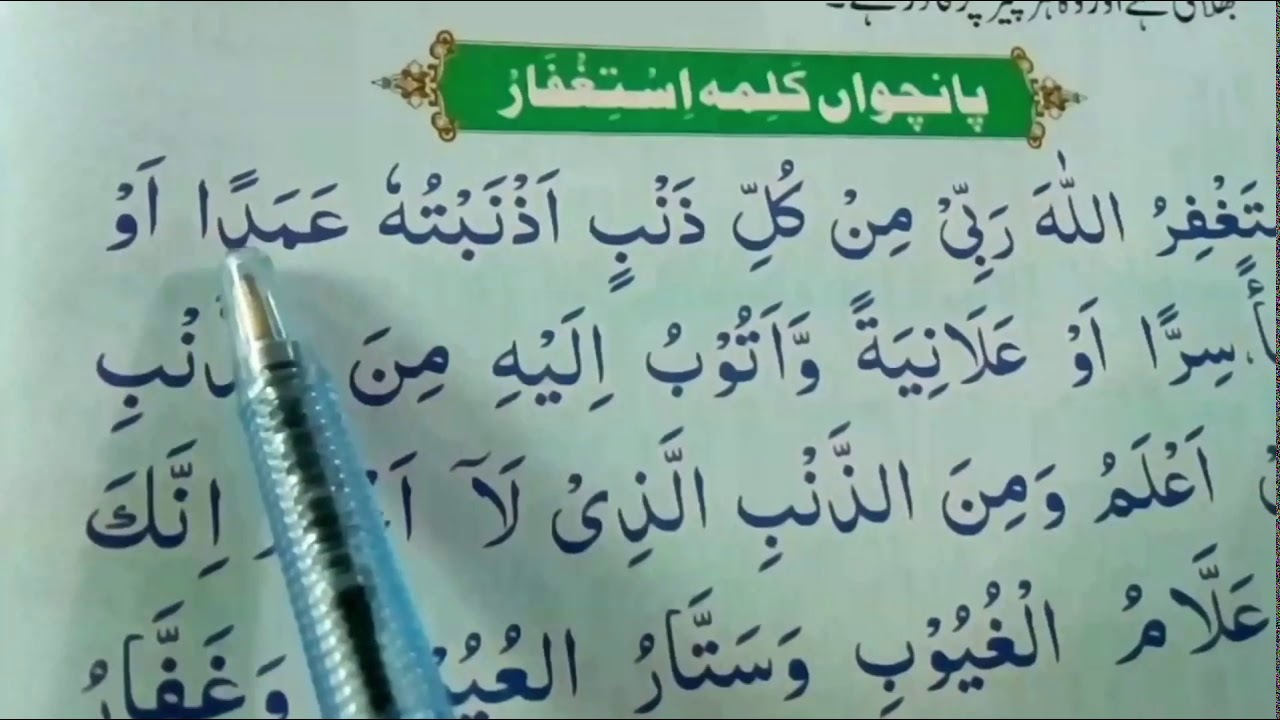 پانچواں کَلِمہ اِسْتِغْفَارْ
اللّٰهَ رَبِّیْ مِنْ کُلِّ ذَنْۢبٍ اَذْنَبْتُهٗ عَمَدًا اَوْ
سِرًّا اَوْ عَلَانِیَةً وَّاَتُوْبُ اِلَیْهِ مِنَ
اَعْلَمُ وَمِنَ الذَّنْۢبِ الَّذِیْ لَآ اِنَّكَ
عَلَّامُ الْغُیُوْبِ وَسَتَّارُ وَغَفَّارُ